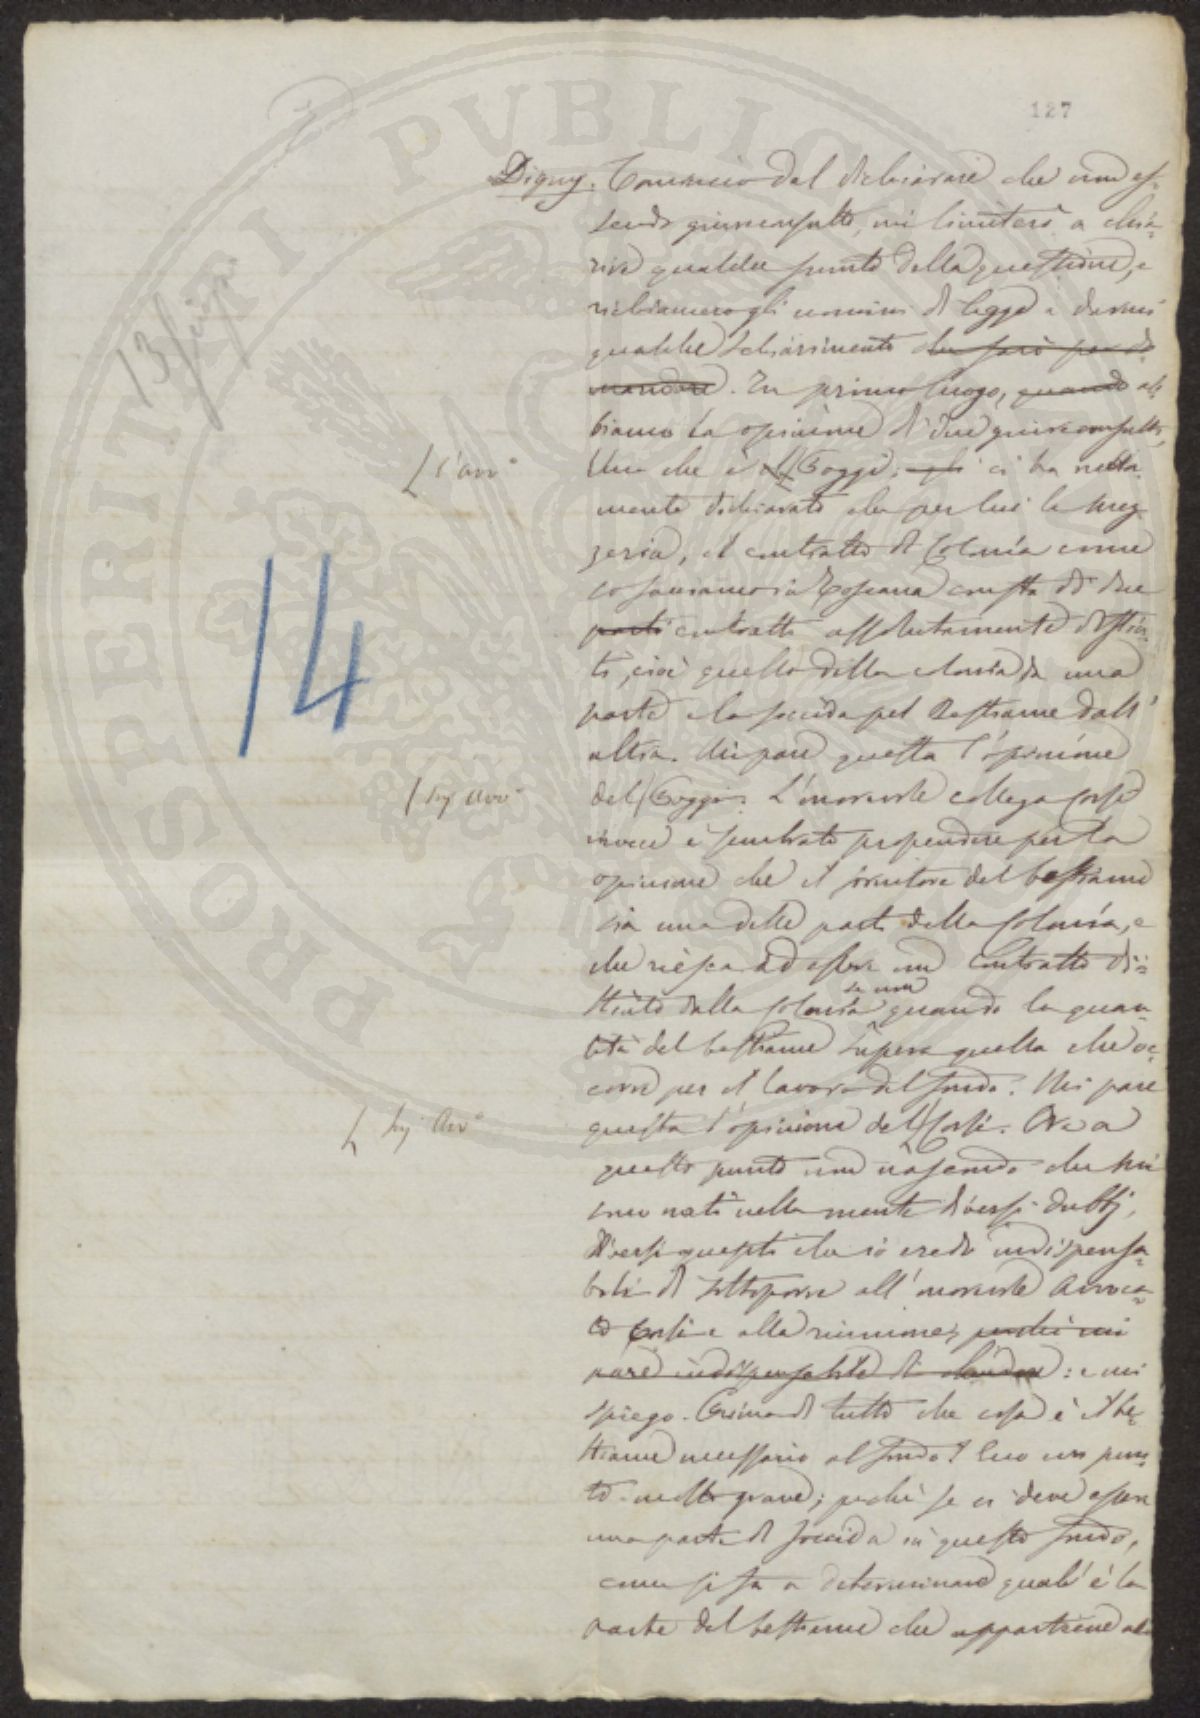 127
Digny. Comincio dal dichiarare che non es-
sendo giureconsulto, mi limiterò a chia-
rire qualche punto della questione, e
richiamerò gli uomini di legge a darmi
qualche schiarimento che sarò per do-
mandare. In primo luogo, quando ab-
biamo la opinione di due giureconsulti,
Uno che è il Poggi; egli ci ha netta-
L l'avvo
mente dichiarato che per lui la mez-
zeria, il contratto di Colonia come
conosciamo in Toscana consta di due
parti contratti assolutamente distin-
ti, cioè quello della colonia da una
parte e la soccida pel Bestiame dall'
altra. Mi pare questa l'opinione
del Poggi. L'onorevole collega Corsi
L sig Avvo
invece è sembrato propendere per la
opinione che il fornitore del bestiame
sia una delle parti della Colonia, e
che riesca ad essere un Contratto di-
stinto dalla Colonia se non quando la quan-
tità del bestiame supera quella che oc-
corre per il lavoro del fondo. Mi pare
questa l'opinione del Corsi. Ora a
L sig Avvo
questo punto non nascondo che mi
sono nati nella mente diversi dubbj,
diversi quesiti che io credo indispensa-
bili di sottoporre all'onorevole Avvoca-
to Corsi e alla riunione; perchè mi
pare indispensabile di chiudere: e mi
spiego. Prima di tutto che cosa è il be-
stiame necessario al fondo? Ecco un pun-
to molto grave; perchè se ci deve essere
una parte di soccida in questo fondo,
come si fa a determinare qual'è la
parte del bestiame che appartiene al
13
14
PROSPERITATI PUBLICAE